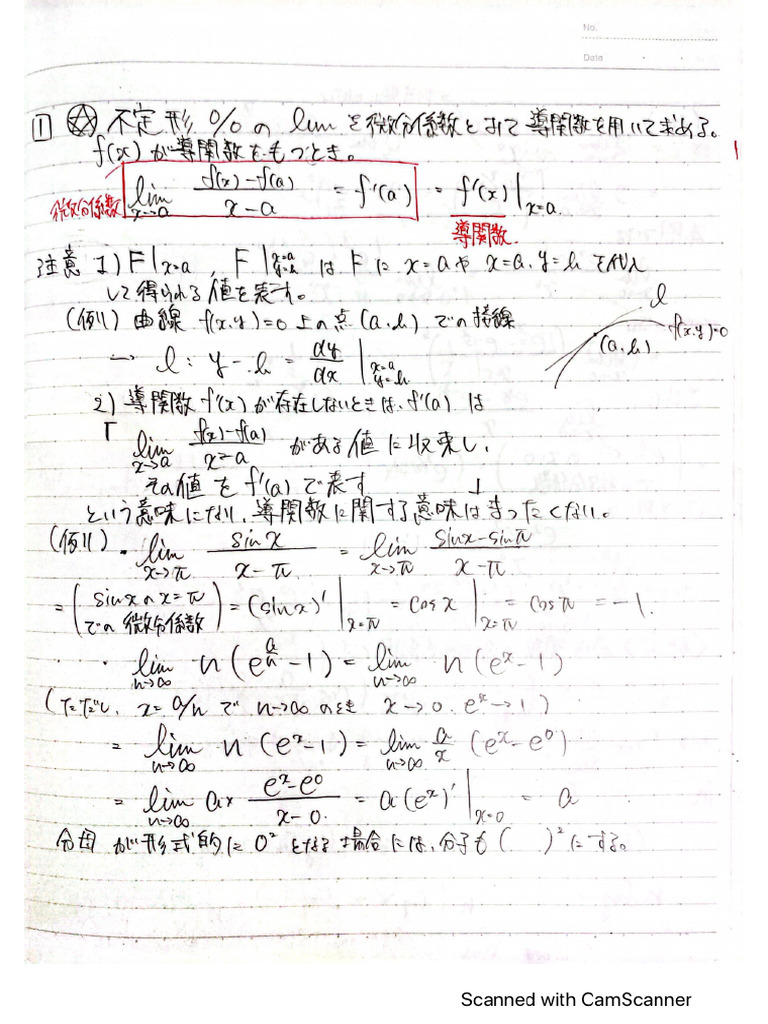 No.
Date
① ☆ 不定形 0/0 の lim を微分係数とみて導関数を用いて求める。
f(x) が導関数をもつとき。
微分係数 lim_{x→a} (f(x)-f(a))/(x-a) = f'(a) = f'(x)|_{x=a}
導関数
注意 1) F|_{x=a}, F|_{x=a, y=b} は F に x=a や x=a, y=b を代入
して得られる値を表す。
(例1) 曲線 f(x,y)=0 上の点 (a,b) での接線
→ l: y-b = dy/dx |_{x=a, y=b}
l
f(x,y)=0
(a,b)
2) 導関数 f'(x) が存在しないときは、f'(a) は
「 lim_{x→a} (f(x)-f(a))/(x-a) がある値に収束し、
その値を f'(a) で表す 」
という意味になり、導関数に関する意味はまったくない。
(例1) ・lim_{x→π} sin x/(x-π) = lim_{x→π} (sin x - sin π)/(x-π)
= (sin x の x=π での微分係数) = (sin x)'|_{x=π} = cos x|_{x=π} = cos π = -1.
・lim_{n→∞} n(e^{a/n}-1) = lim_{n→∞} n(e^x-1)
(ただし、x=a/n で n→∞ のとき x→0. e^x→1)
= lim_{n→∞} n(e^x-1) = lim_{n→∞} a/x (e^x-e^0)
= lim_{n→∞} a× (e^x-e^0)/(x-0) = a(e^x)'|_{x=0} = a
分母が形式的に 0² となる場合には、分子も (　)² にする。
Scanned with CamScanner